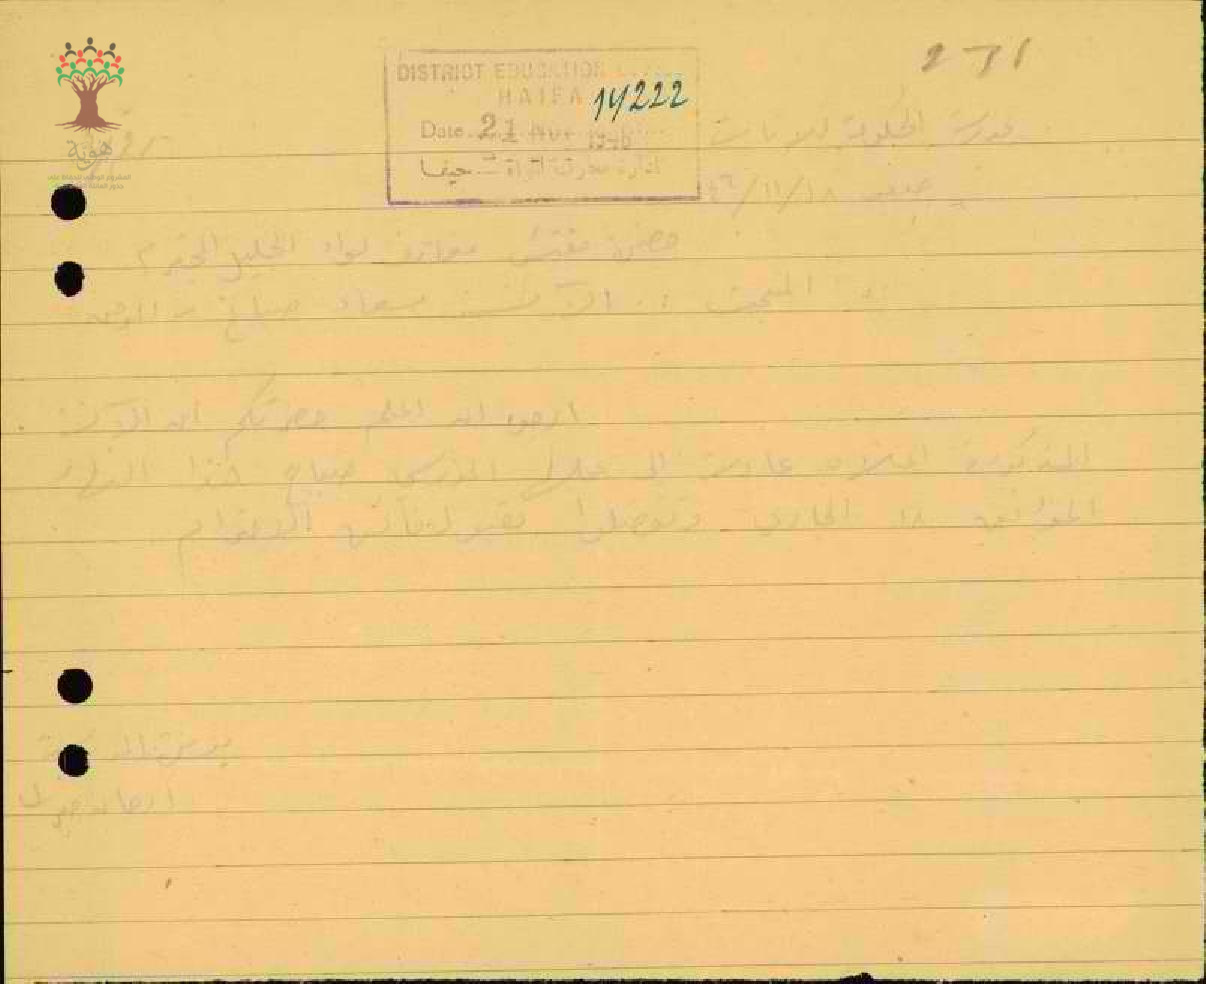 271
DISTRICT EDUCATION
HAIFA
14222
Date 21 Nov 1946
حيفا
هوية
مدرسة الحكومة للبنات
٤٦/١١/١٨
حضرة مفتش معارف لواء الجليل المحترم
المبحث : الآنسة سعاد صباغ
ارجو ان اعلم حضرتكم ان الآنسة
المذكورة اعلاه عادت الى عملها المدرسي صباح هذا النهار
الموافق ١٨ الجاري وتفضلوا بقبول فائق الاحترام